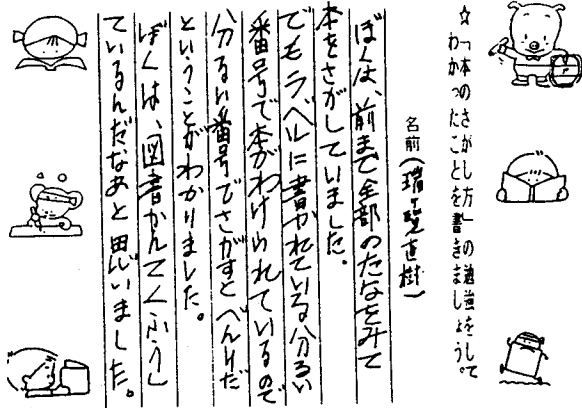 ☆「本のさがし方」の勉強をして
わかったことを書きましょう。
名前(瑞慶覧直樹)
ぼくは、前まで全部のたなをみて
本をさがしていました。
でもラベルに書かれている分るい
番号で本がわけられているので
分るい番号でさがすとべんりだ
ということがわかりました。
ぼくは、図書かんてくふうし
ているんだなあと思いました。